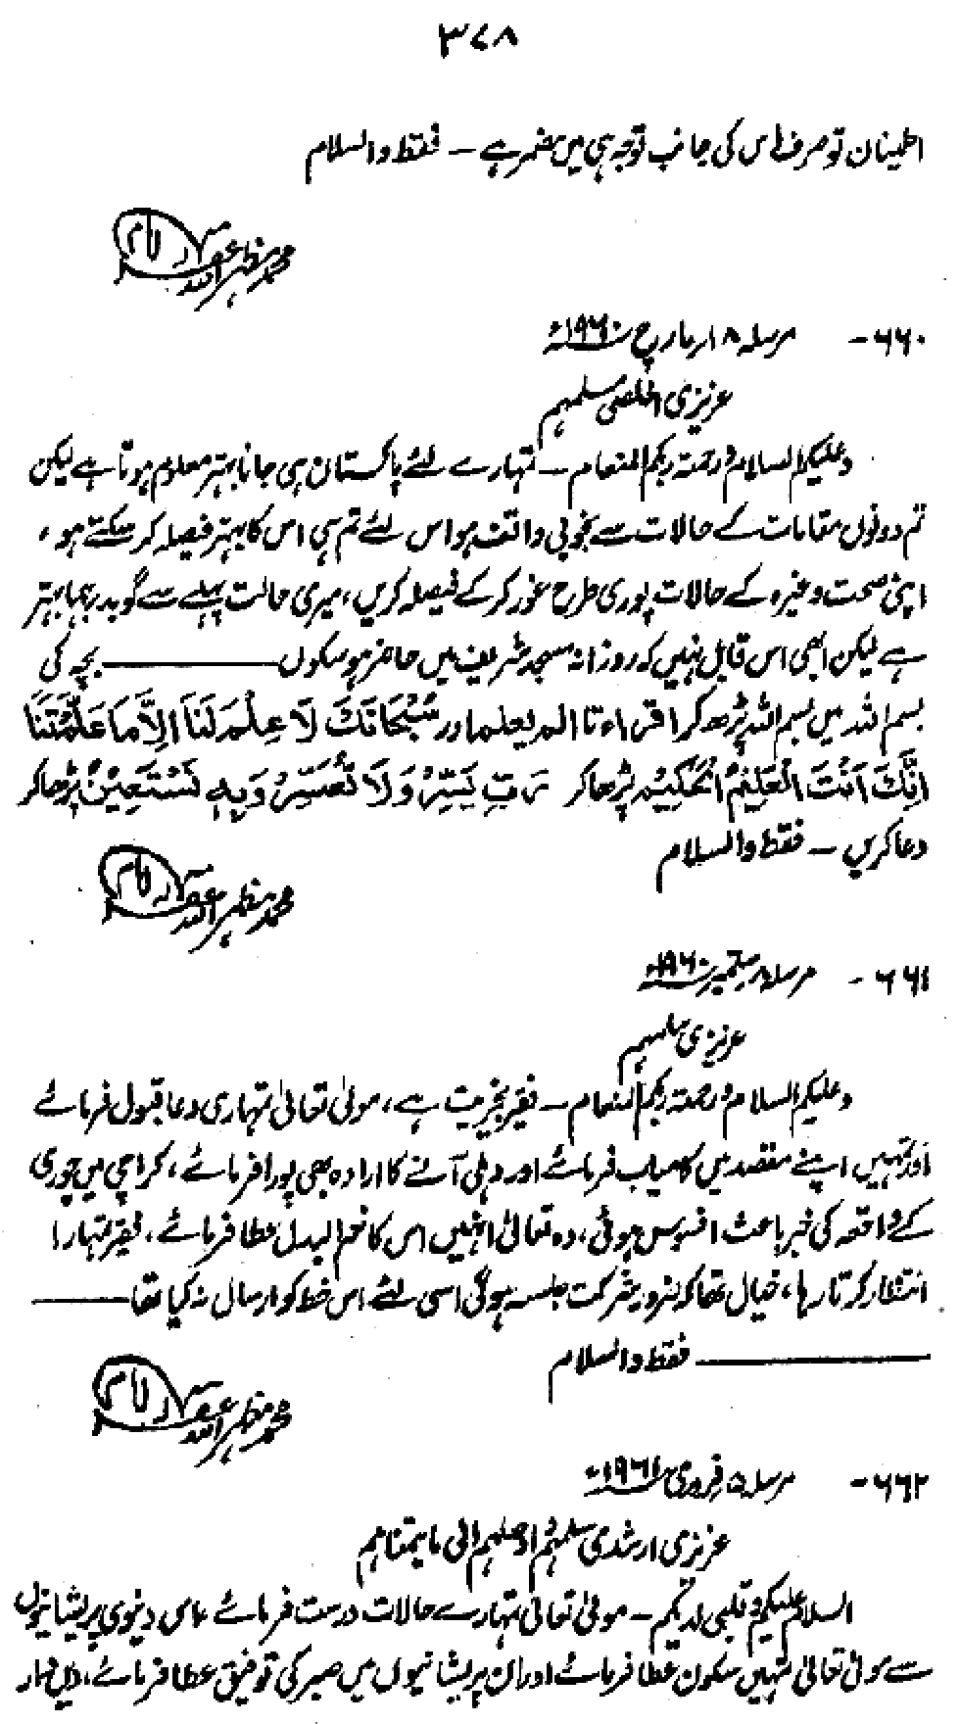 ۳۷۸
اطمینان تو صرف اس کی جانب توجہ ہی میں مضمر ہے – فقط والسلام
محمد مظہر اللہ غفرلہ
۶۶۰- مرسلہ ۱۸ر مارچ ۱۹۶۰ء
عزیزی اخلصی سلمہم
وعلیکم السلام ورحمۃ ربکم المنعام – تمہارے لئے پاکستان ہی جانا بہتر معلوم ہوتا ہے لیکن
تم دونوں مقامات کے حالات سے بخوبی واقف ہو اس لئے تم ہی اس کا بہتر فیصلہ کر سکتے ہو،
اپنی صحت وغیرہ کے حالات پوری طرح غور کر کے فیصلہ کریں، میری حالت پہلے سے گو بدرجہا بہتر
ہے لیکن ابھی اس قابل نہیں کہ روزانہ مسجد شریف میں حاضر ہو سکوں ——— بچہ کی
بسم اللہ میں بسم اللہ پڑھ کر اقراء تا الم یعلم اور سُبْحَانَکَ لَا عِلْمَ لَنَا اِلَّا مَا عَلَّمْتَنَا
اِنَّکَ اَنْتَ الْعَلِیْمُ الْحَکِیْمُ پڑھا کر رَبِّ یَسِّرْ وَلَا تُعَسِّرْ وَبِہٖ نَسْتَعِیْنُ پڑھا کر
دعا کریں – فقط والسلام
محمد مظہر اللہ غفرلہ
۶۶۱- مرسلہ ۸ر ستمبر ۱۹۶۰ء
عزیزی سلمہم
وعلیکم السلام ورحمۃ ربکم المنعام – فقیر بخیریت ہے، مولیٰ تعالیٰ تمہاری دعا قبول فرمائے
اور تمہیں اپنے مقصد میں کامیاب فرمائے اور دہلی آنے کا ارادہ بھی پورا فرمائے، کراچی میں چوری
کے واقعہ کی خبر باعث افسوس ہوئی، وہ تعالیٰ انہیں اس کا نعم البدل عطا فرمائے، فقیر تمہارا
انتظار کرتا رہا، خیال تھا کہ ضرور شرکت جلسہ ہوگی اسی لئے اس خط کو ارسال نہ کیا تھا ———
——— فقط والسلام
محمد مظہر اللہ غفرلہ
۶۶۲- مرسلہ ۵ر فروری ۱۹۶۱ء
عزیزی ارشدی سلمہم واوصلہم الی ما یتمناہم
السلام علیکم وقلبی لدیکم – مولیٰ تعالیٰ تمہارے حالات درست فرمائے، اس دنیوی پریشانیوں
سے مولیٰ تعالیٰ تمہیں سکون عطا فرمائے اور ان پریشانیوں میں صبر کی توفیق عطا فرمائے،